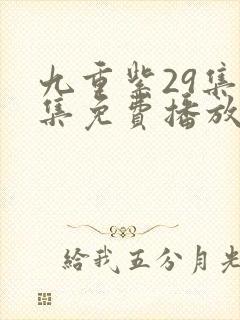 九重紫29集
集免費播放
給我五分月光